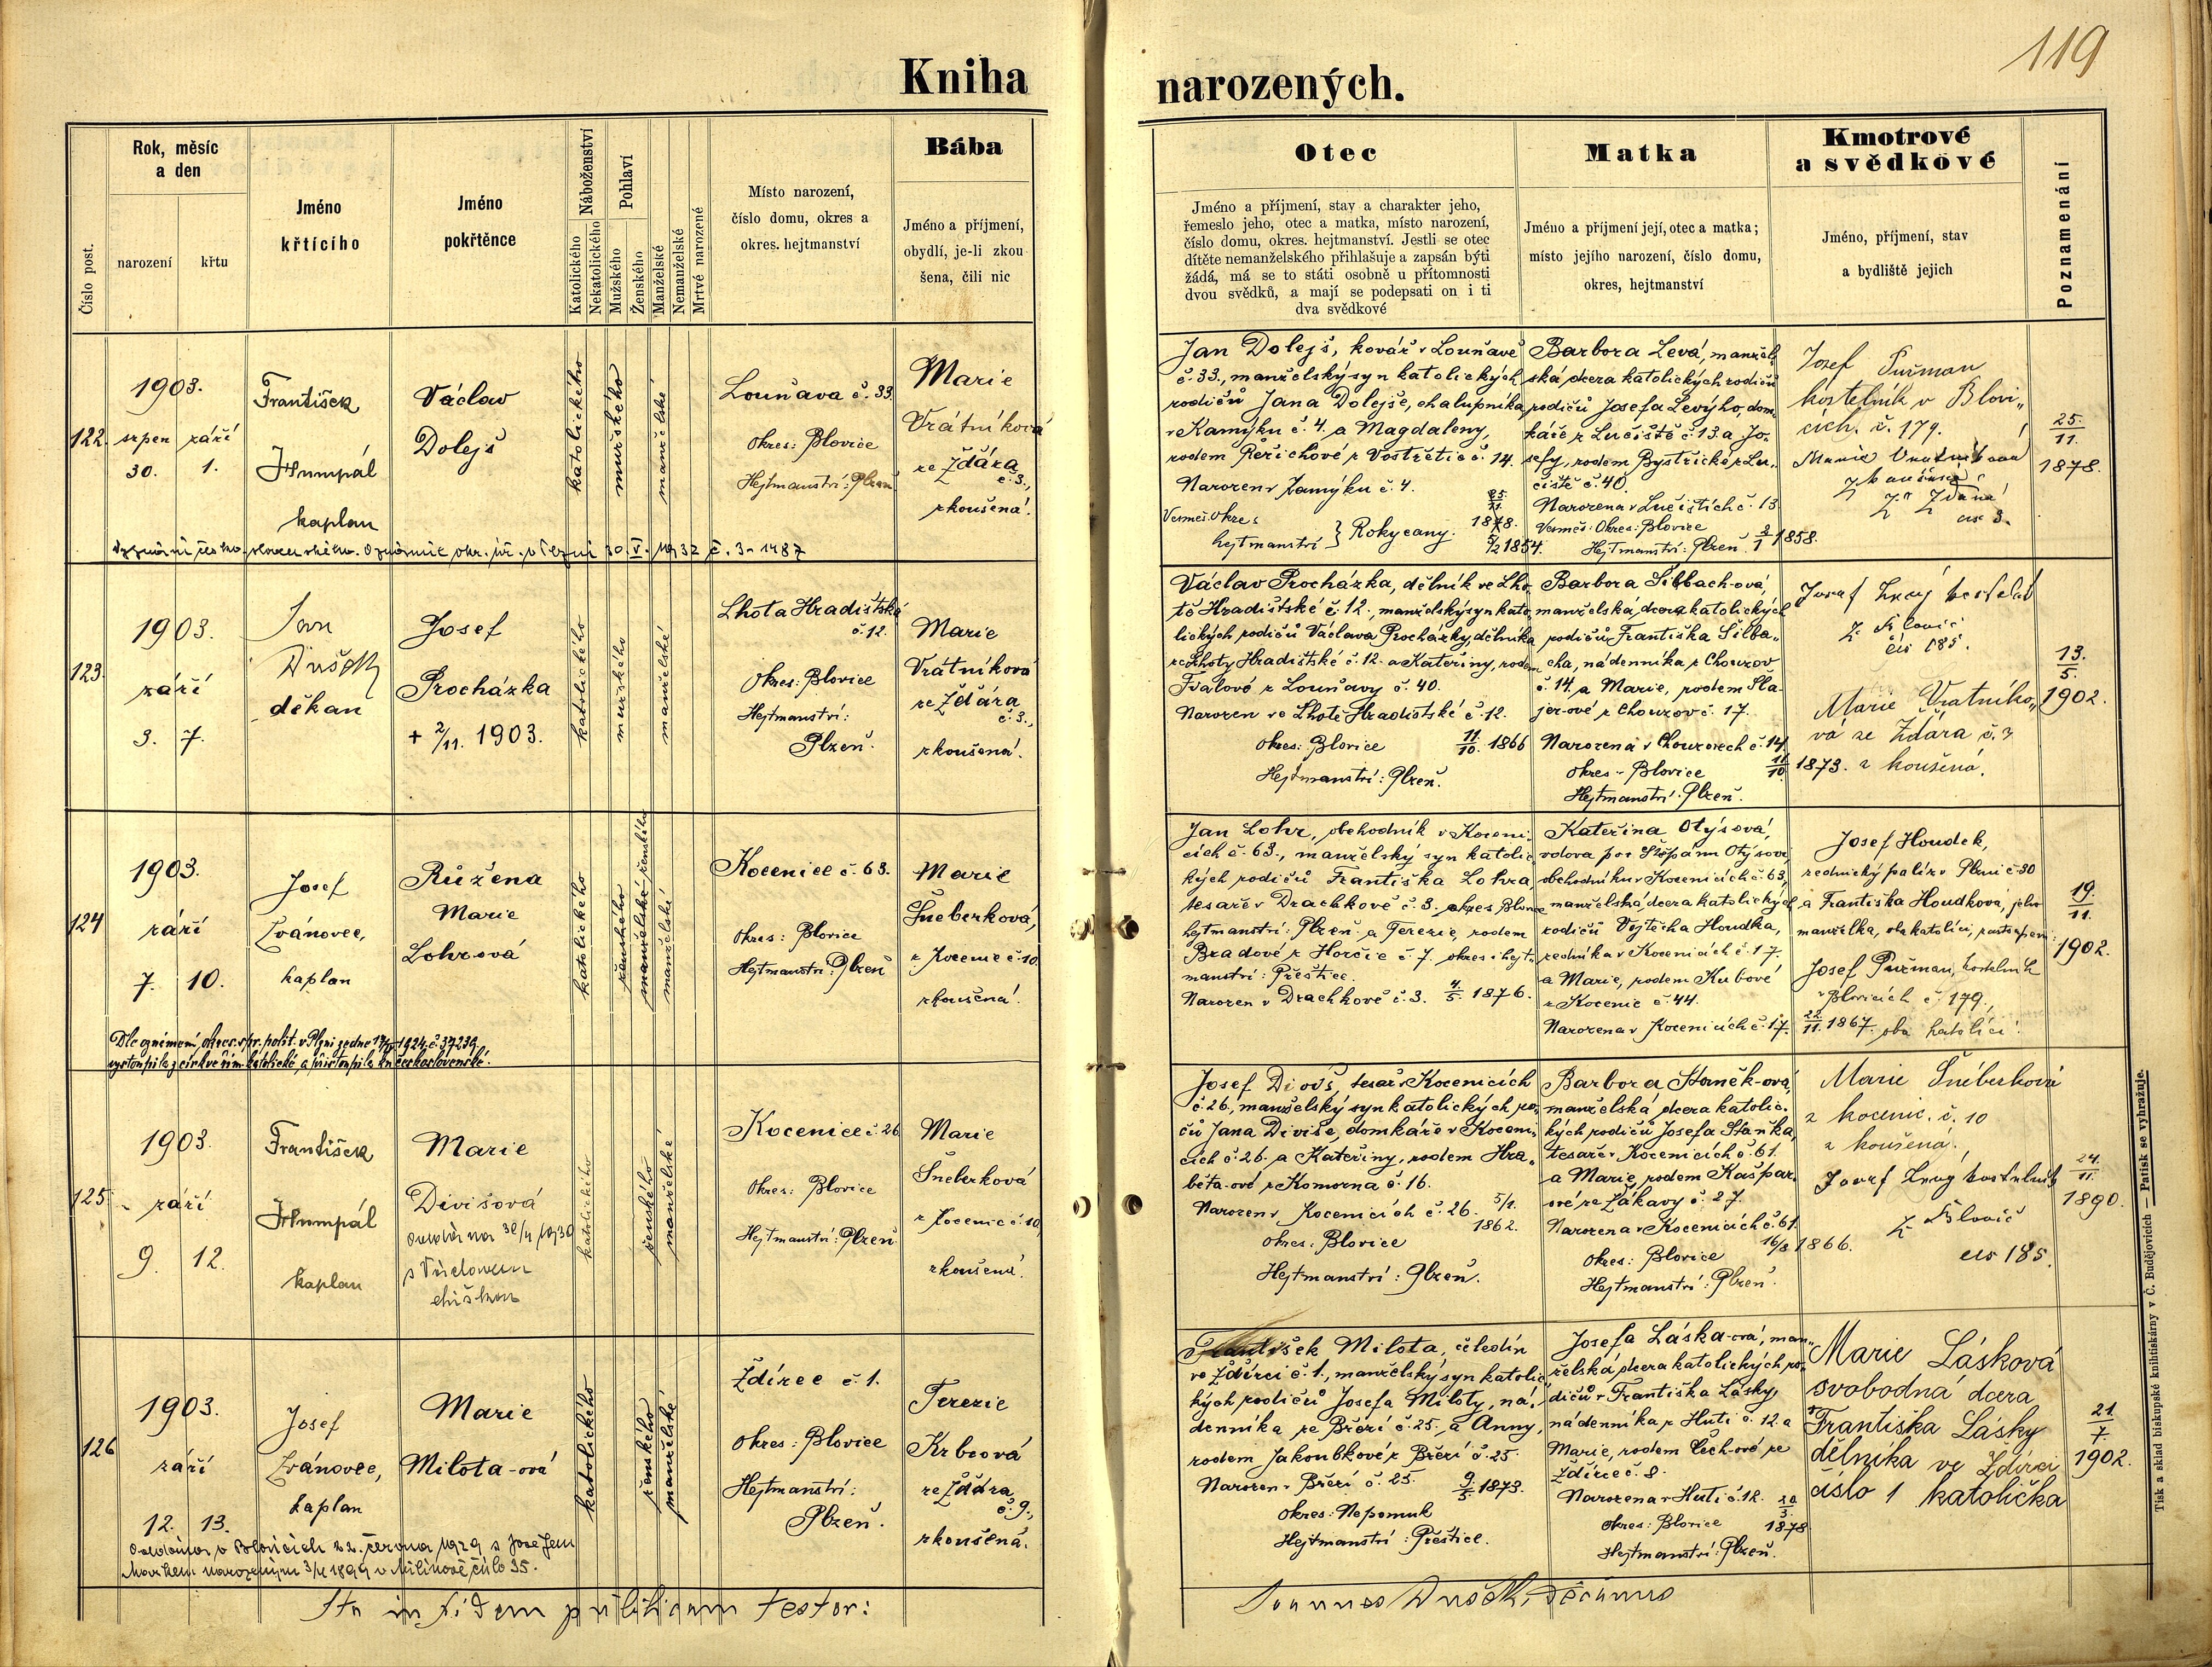 119
Kniha narozených.
Číslo post.
Rok, měsíc
a den
narození
křtu
Jméno
křtícího
Jméno
pokřtěnce
Náboženství
Katolického
Nekatolického
Pohlaví
Mužského
Ženského
Manželské
Nemanželské
Mrtvé narozené
Místo narození,
číslo domu, okres a
okres. hejtmanství
Bába
Jméno a příjmení,
obydlí, je-li zkou
šena, čili nic
Otec
Jméno a příjmení, stav a charakter jeho,
řemeslo jeho, otec a matka, místo narození,
číslo domu, okres. hejtmanství. Jestli se otec
dítěte nemanželského přihlašuje a zapsán býti
žádá, má se to státi osobně u přítomnosti
dvou svědků, a mají se podepsati on i ti
dva svědkové
Matka
Jméno a příjmení její, otec a matka;
místo jejího narození, číslo domu,
okres, hejtmanství
Kmotrové
a svědkové
Jméno, příjmení, stav
a bydliště jejich
Poznamenání
122.
1903.
srpen září
30. 1.
František
Humpál
kaplan
Václav
Dolejš
katolického
mužského
manželské
Louňava č. 33.
Okres: Blovice
Hejtmanství: Plzeň
Marie
Vrátníková
ze Ždára
č. 3.,
zkoušená.
Jan Dolejš, kovář v Louňavě
č. 33., manželský syn katolických
rodičů Jana Dolejše, chalupníka
v Kamýku č. 4. a Magdaleny,
rodem Řeřichové z Vostřetic č. 14.
Narozen v Kamýku č. 4.
25/11 1878.
Okres
hejtmanství } Rokycany.
5/2 1854.
Barbora Levá, manžel
ská dcera katolických rodičů
rodičů Josefa Levýho, dom
káře z Lučiště č. 13. a Jo-
sefy, rodem Bystrické z Lu-
čiště č. 40
Narozena v Lučištích č. 13
Okres: Blovice
Hejtmanství: Plzeň. 2/1 1858.
Josef Pužman
kostelník v Blovi„
cích. č. 179.
Marie Vratníková
zkoušená
Ze Ždára
čís 3.
25./11. 1878.
30. V. 1932 č. 3-1487
123.
1903.
září
3. 7.
Jan
Dušek
děkan
Josef
Procházka
+ 2/11. 1903.
katolického
mužského
manželské
Lhota Hradištská
č. 12.
Okres: Blovice
Hejtmanství:
Plzeň.
Marie
Vrátníková
ze Ždára
č. 3.,
zkoušená.
Václav Procházka, dělník ve Lho
tě Hradištské č. 12., manželský syn kato
lických rodičů Václava Procházky, dělníka
ze Lhoty Hradištské č. 12. a Kateřiny, rodem
Tválové z Louňavy č. 40.
Narozen ve Lhotě Hradištské č. 12.
Okres: Blovice 11/10. 1866
Hejtmanství: Plzeň.
Barbora Šilbach-ová,
manželská dcera katolických
rodičů Františka Šilba„
cha, nádenníka z Chouzov
č. 14. a Marie, rodem Šla-
jer-ové z Chouzov č. 17.
Narozena v Chouzovech č. 14.
Okres: Blovice 11/10 1873.
Hejtmanství: Plzeň.
Josef
z Blovic
čís 185.
Marie Vratníko„
vá ze Ždára č. 3
zkoušená.
13./5. 1902.
124
1903.
září
7. 10.
Josef
Zvánovec,
kaplan
Růžena
Marie
Lohrová
katolického
ženského
manželské
Kocenice č. 63.
Okres: Blovice
Hejtmanství: Plzeň
Marie
Šneberková,
z Kocenic č. 10
zkoušená.
Jan Lohr, obchodník v Koceni-
cích č. 63., manželský syn katolic
kých rodičů Františka Lohra,
tesaře v Drachkově č. 3. okres Blovice
hejtmanství: Plzeň a Terezie, rodem
Bradové z Horčic č. 7. okres i hejt-
manství: Přeštice.
Narozen v Drachkově č. 3. 4/5. 1876.
Kateřina Otýsová,
vdova po Štěpánu Otýsovi
obchodníku v Kocenicích č. 63,
manželská dcera katolických
rodičů Vojtěcha Houdka,
zedníka v Kocenicích č. 17.
a Marie, rodem Kubové
z Kocenic č. 44.
Narozena v Kocenicích č. 17. 22/11. 1867.
Josef Houdek,
zednický palír v Plzni č. 30
a Františka Houdková, jeho
manželka, oba katolíci,
Josef Pužman, kostelník
v Blovicích č. 179.,
oba katolíci.
19./11. 1902.
Dle oznámení okres. spr. polit. v Plzni ze dne 1924 č. 37239.
vystoupila z církve řím. katolické a přistoupila ku československé.
125.
1903.
září
9. 12.
František
Humpál
kaplan
Marie
Divišová
oddána 30/4 1930
s Václavem
katolického
ženského
manželské
Kocenice č. 26
Okres: Blovice
Hejtmanství: Plzeň
Marie
Šneberková
z Kocenic č. 10
zkoušená.
Josef Diviš, tesař v Kocenicích
č. 26., manželský syn katolických ro„
čů Jana Diviše, domkáře v Koceni„
cích č. 26. a Kateřiny, rodem Hra„
běta-ové z Komorna č. 16.
Narozen v Kocenicích č. 26. 5/1. 1862.
Okres: Blovice
Hejtmanství: Plzeň.
Barbora Staněk-ová,
manželská dcera katolic.
kých rodičů Josefa Staňka,
tesaře v Kocenicích č. 61.
a Marie, rodem Kašpar
ové ze Žákavy č. 27.
Narozena v Kocenicích č. 61.
16/8 1866.
Okres: Blovice
Hejtmanství: Plzeň.
Marie Šnéberková
z kocenic. č. 10
zkoušená.
Josef
z Blovic
čís 185.
24./11. 1890.
126
1903.
září
12. 13.
Josef
Zvánovec,
kaplan
Marie
Milota-ová
katolického
ženského
manželské
Ždírec č. 1.
Okres: Blovice
Hejtmanství:
Plzeň.
Terezie
Krbcová
ze Ždára
č. 9.,
zkoušená.
František Milota, čeledín
ve Ždírci č. 1., manželský syn katolic„
kých rodičů Josefa Miloty, ná„
denníka ze Březí č. 25. a Anny,
rodem Jakoubkové z Březí č. 25.
Narozen v Březí č. 25. 9/5. 1873.
Okres: Nepomuk
Hejtmanství: Přeštice.
Josefa Láska-ová, man„
želská dcera katolických ro„
dičů Františka Lásky,
nádenníka z Huti č. 12 a
Marie, rodem Čech-ové ze
Ždírce č. 8.
Narozena v Huti č. 12. 20/3. 1878
Okres: Blovice
Hejtmanství: Plzeň.
Marie Lásková
svobodná dcera
Františka Lásky
dělníka ve Ždírci
číslo 1 katolička
21/7. 1902.
Oddána v Blovicích 22. června 1929 s Josefem
narozeným 3/4 1899 v Milínově číslo 35.
Ita in fidem publicam testor:
Joannes Dušek, decanus
Tisk a sklad biskupské knihtiskárny v Č. Budějovicích — Patisk se vyhražuje.